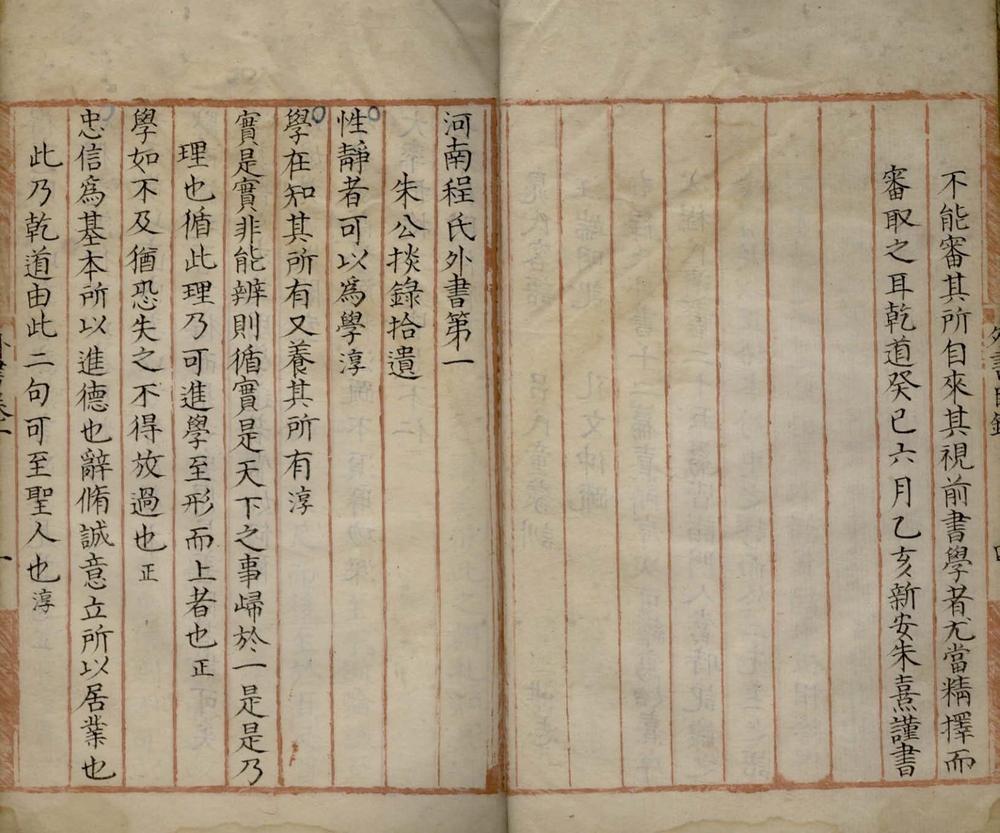 不能審其所自來其視前書學者尤當精擇而
審取之耳乾道癸巳六月乙亥新安朱熹謹書
河南程氏外書第一
朱公掞錄拾遺
性靜者可以為學淳
學在知其所有又養其所有淳
實是實非能辨則循實是天下之事歸於一是是乃
理也循此理乃可進學至形而上者也正
學如不及猶恐失之不得放過也正
忠信為基本所以進德也辭脩誠意立所以居業也
此乃乾道由此二句可至聖人也淳